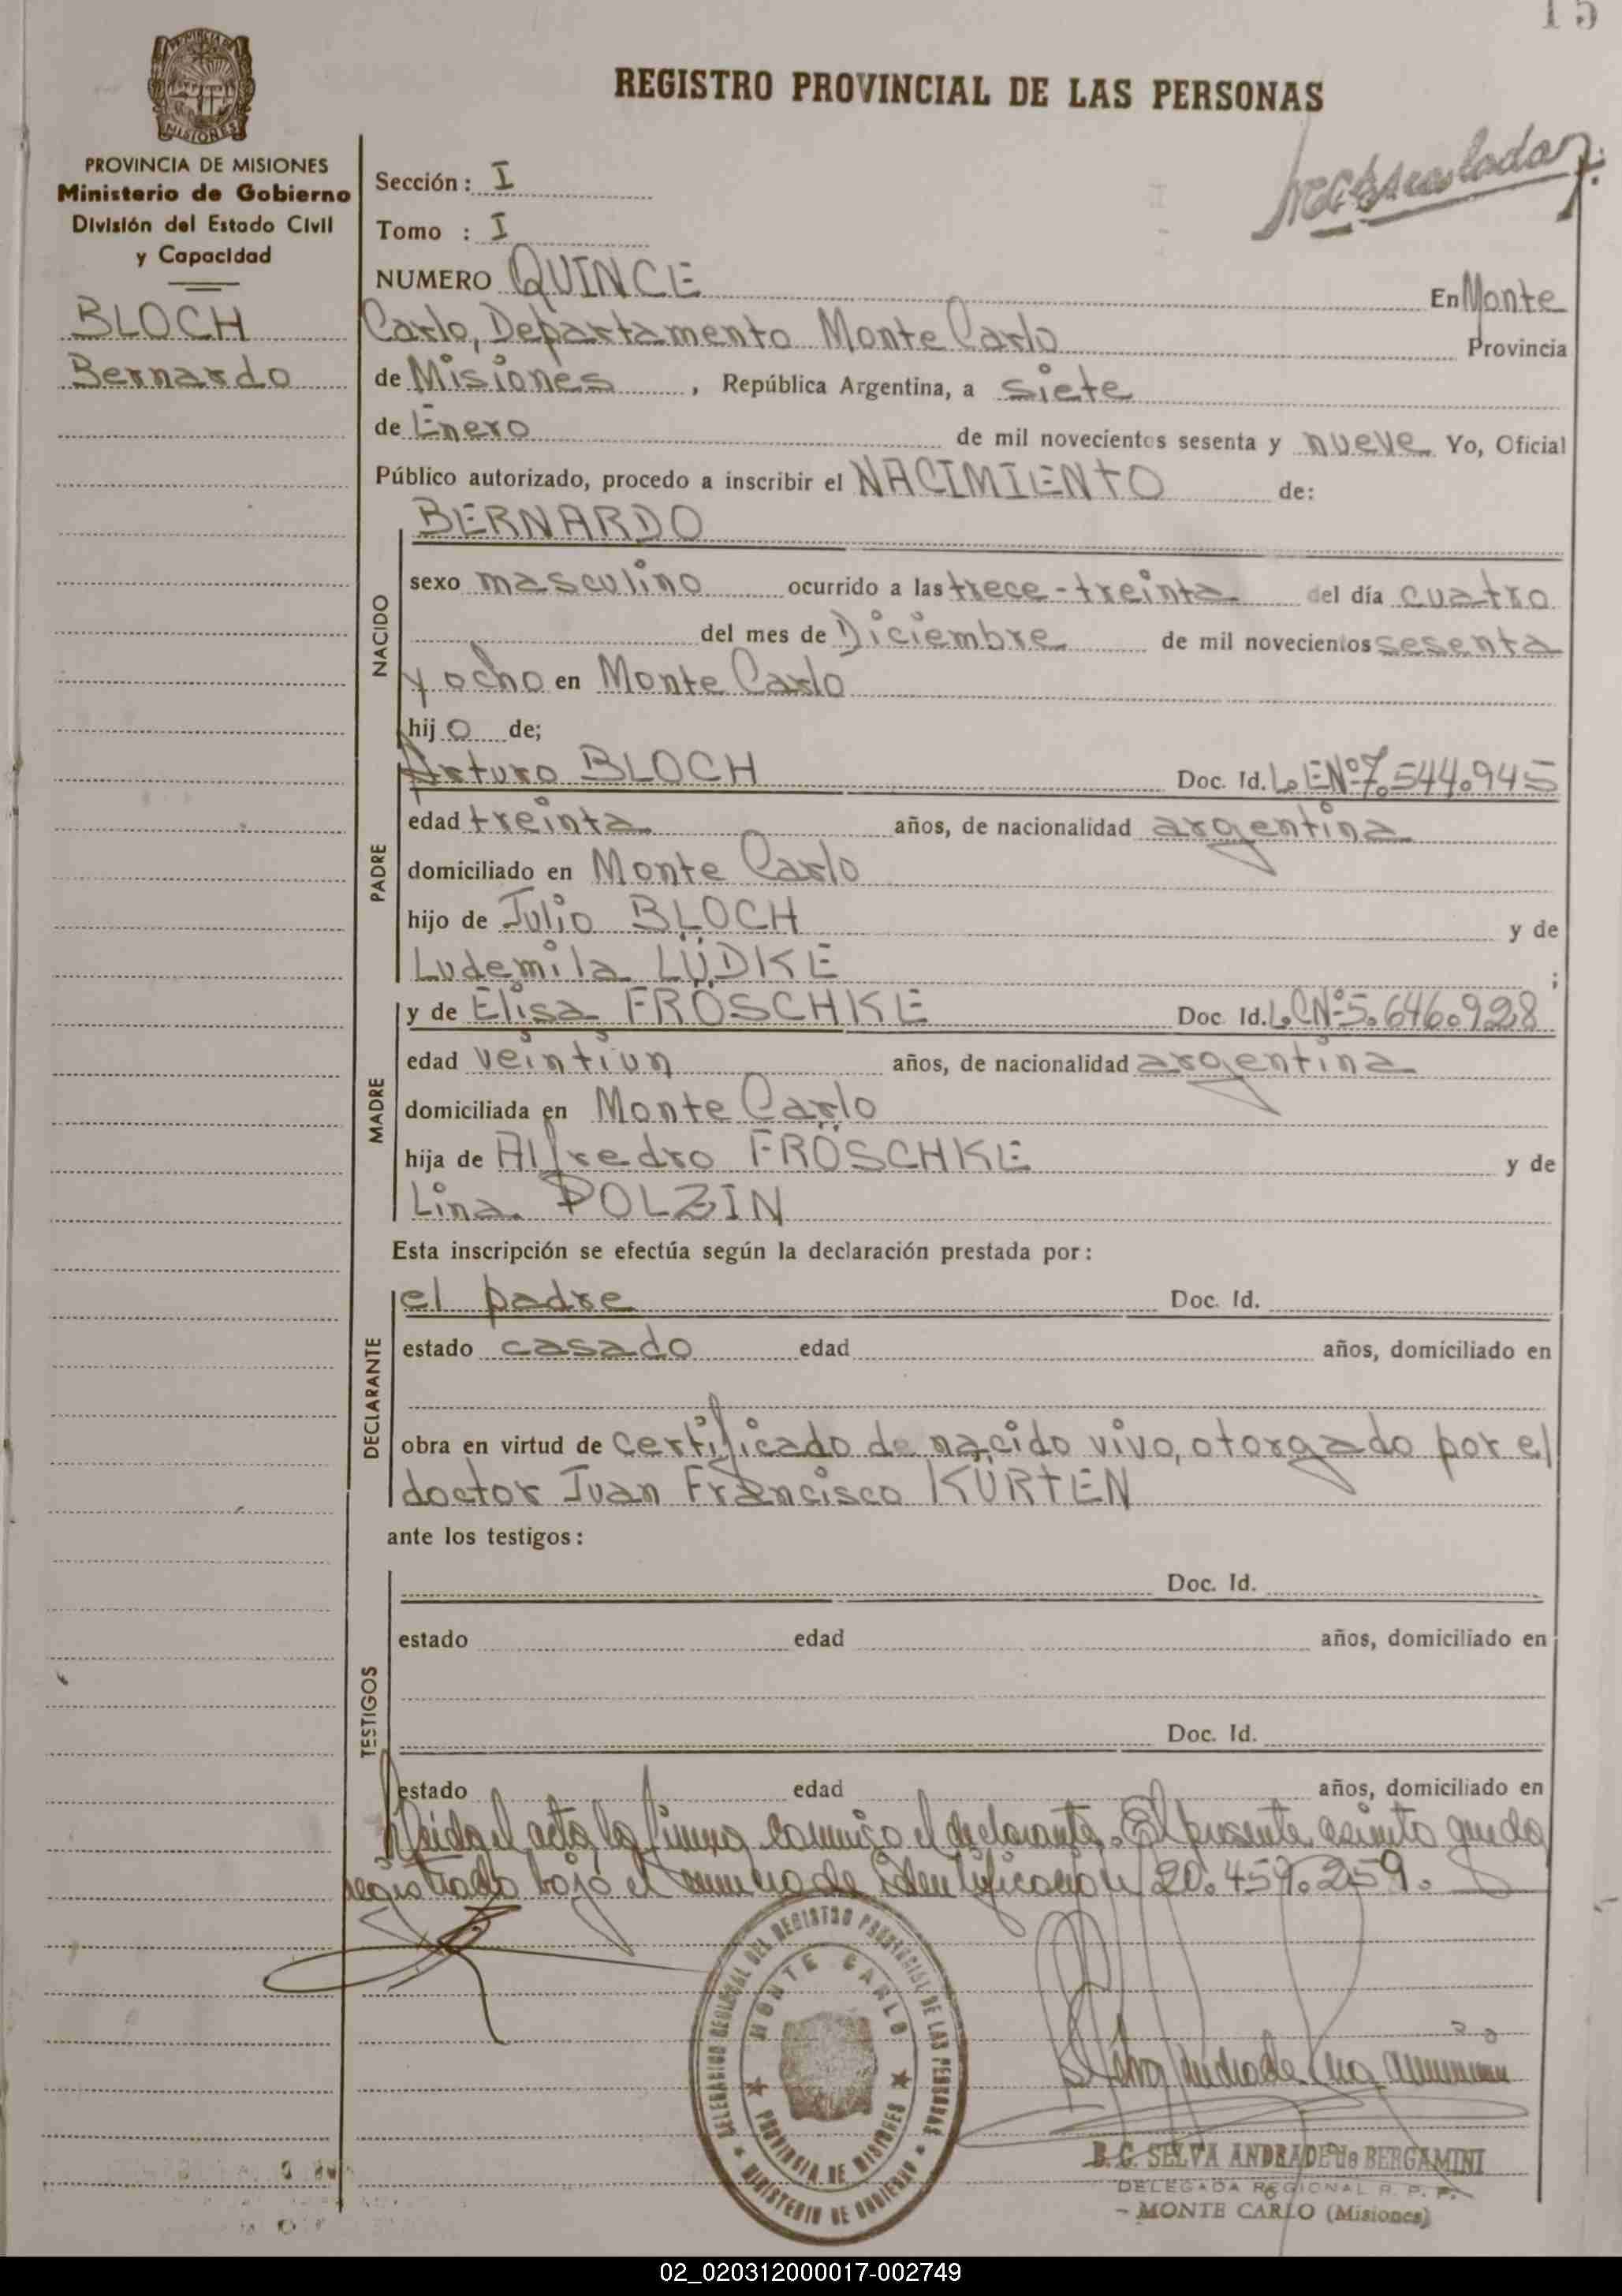 15
MISIONES
REGISTRO PROVINCIAL DE LAS PERSONAS
PROVINCIA DE MISIONES
Ministerio de Gobierno
División del Estado Civil
y Capacidad
BLOCH
Bernardo
Sección: I
Tomo : I
NUMERO QUINCE En Monte
Carlo, Departamento Monte Carlo Provincia
de Misiones, República Argentina, a siete
de Enero de mil novecientos sesenta y nueve Yo, Oficial
Público autorizado, procedo a inscribir el NACIMIENTO de:
NACIDO
BERNARDO
sexo masculino ocurrido a las trece-treinta del día cuatro
del mes de Diciembre de mil novecientos sesenta
y ocho en Monte Carlo
hijo de;
PADRE
Arturo BLOCH Doc. Id. L.E.Nº 7.544.945
edad treinta años, de nacionalidad argentina
domiciliado en Monte Carlo
hijo de Julio BLOCH y de
Ludemila LÜDKE ;
MADRE
y de Elisa FRÖSCHKE Doc. Id. L.C.Nº 5.646.928
edad veintiun años, de nacionalidad argentina
domiciliada en Monte Carlo
hija de Alfredro FRÖSCHKE y de
Lina POLZIN
Esta inscripción se efectúa según la declaración prestada por:
DECLARANTE
el padre Doc. Id.
estado casado edad años, domiciliado en
obra en virtud de certificado de nacido vivo, otorgado por el
doctor Juan Francisco KÜRTEN
ante los testigos:
TESTIGOS
Doc. Id.
estado edad años, domiciliado en
Doc. Id.
estado edad años, domiciliado en
Leida el acta, la firma conmigo el declarante. El presente escrito queda
registrado bajo el numero de identificación 20.459.259.
DELEGACION REGIONAL DEL REGISTRO PROVINCIAL DE LAS PERSONAS
MONTE CARLO
PROVINCIA DE MISIONES
MINISTERIO DE GOBIERNO
B. G. SELVA ANDRADE de BERGAMINI
DELEGADA REGIONAL R. P. P.
- MONTE CARLO (Misiones)
02_020312000017-002749